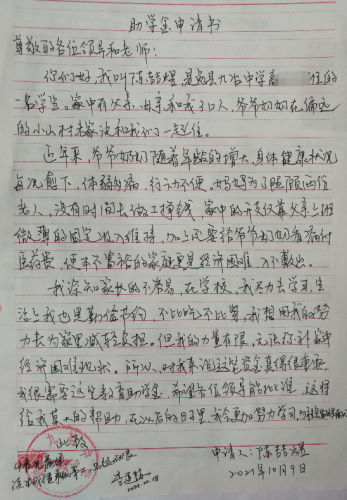 助学金申请书
尊敬的各位领导和老师：
你们好，我叫陈喆煜，是 九 中学 住的
一名学生。家中有父亲，母亲和我3口人，爷爷奶奶在偏远
的小山村老家没和我们一起住。
近年来，爷爷奶奶随着年龄的增大，身体健康状况
每况愈下，体弱多病，行动不便，妈妈为了照顾两位
老人，没有时间去做工挣钱，家中的开支仅靠父亲上班
微薄的固定收入维持，加上还要给爷爷奶奶看病付
医药费，使本不富裕的家庭更是经济困难，入不敷出。
我深知家长的不容易，在学校，我尽力去学习，生
活上我也是勤俭节约，不比吃不比穿，我想用我的努
力去为家里减轻负担。但我的力量有限，无法弥补家中
经济困难现状。所以，对我来说这笔资金真得很重要，
我很需要这笔教育助学金，希望各位领导能批准，这将
给我莫大的帮助，在以后的日子里，我会更加努力学习，
此致
申请人：陈喆煜
2021年10月9日
2021.10.18